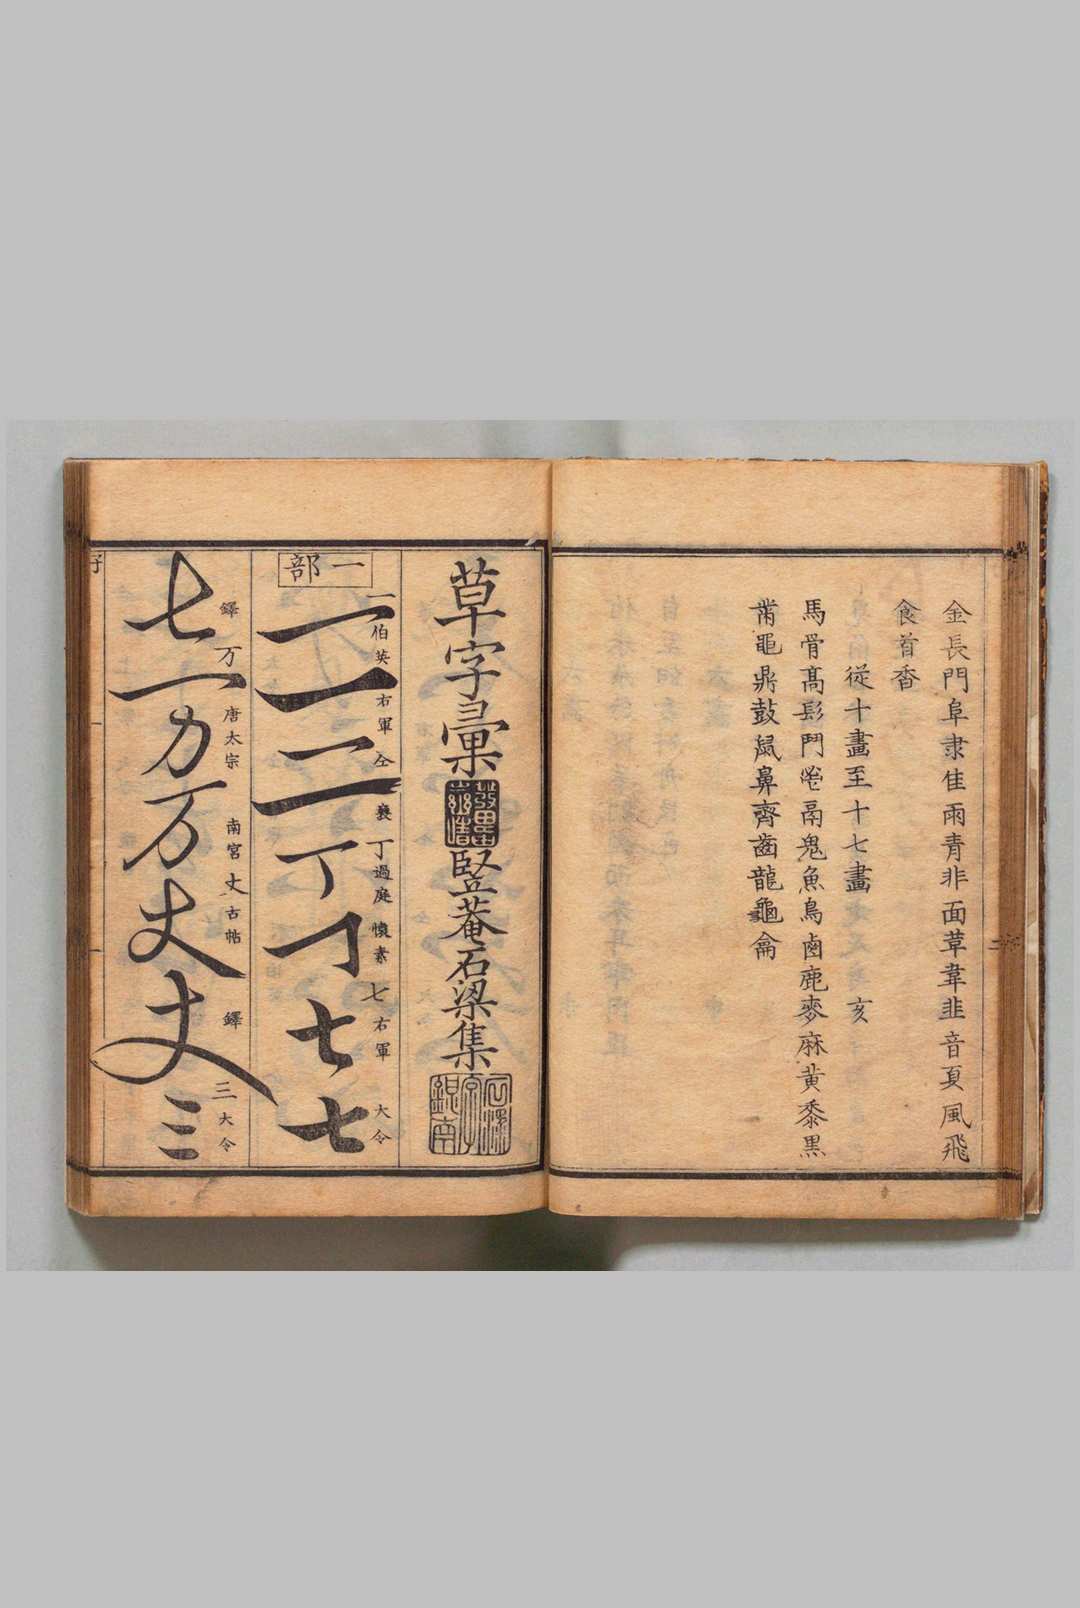 金長門阜隶隹雨青非面革韋韭音頁風飛
食首香
從十畫至十七畫亥
馬骨高髟鬥鬯鬲鬼魚鳥鹵鹿麥麻黃黍黑
黹黽鼎鼓鼠鼻齊齒龍龜龠
草字彙
竪菴石梁集
一部
一 伯英 右軍 仝 襄 丁 過庭 懷素 七 右軍 大令
一一二二丁丁七七
鐸 万 唐太宗 南宮 丈 古帖 鐸 三 大令
七万万丈丈三